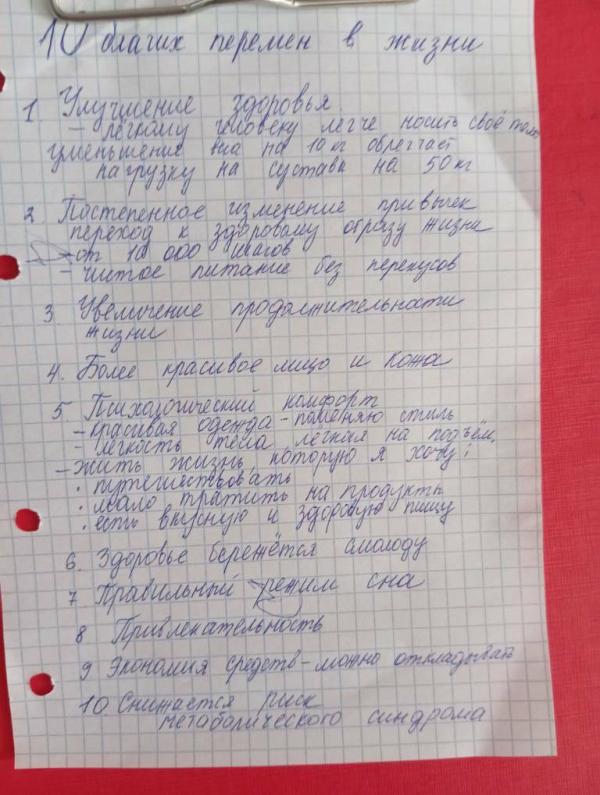 10 благих перемен в жизни
1. Улучшение здоровья.
- легкому человеку легче носить своё тело
уменьшение веса на 10 кг облегчает
нагрузку на суставы на 50 кг
2. Постепенное изменение привычек
переход к здоровому образу жизни
- от 10 000 шагов
- чистое питание без перекусов
3. Увеличение продолжительности
жизни
4. Более красивое лицо и кожа
5 Психологический комфорт
- красивая одежда - поменяю стиль
- лёгкость тела, лёгкая на подъём,
- жить жизнь, которую я хочу:
· путешествовать
· мало тратить на продукты
· есть вкусную и здоровую пищу
6. Здоровье бережётся смолоду
7 Правильный режим сна
8 Привлекательность
9 Экономия средств - можно откладывать
10. Снижается риск
метаболического синдрома